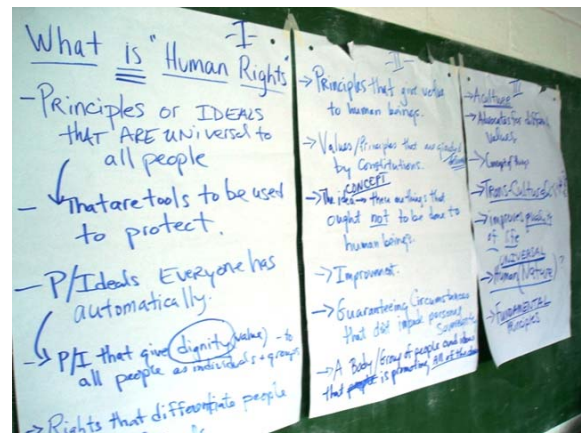 -I-
What is "Human Rights"
- Principles or IDEALS
that ARE universal to
all people
- that are tools to be used
to protect.
- P/Ideals Everyone has
automatically.
P/I that give dignity (value) - to
all people as individuals + groups
→ Rights that differentiate people
-II-
→ Principles that give value
to human beings.
→ Values/Principles that are
by Constitutions.
CONCEPT
→ The idea these are things that
ought not to be done to
human beings.
→ Improvement.
→ Guaranteeing Circumstances
that do impede persons
→ A Body/Group of people and ideas
that is promoting all of the above
III
→ A culture
→ Advocates for different
values.
→ Concept of
→ Trans-Culture
→ improves quality
of life
UNIVERSAL
→ Human (Nature)?
→ FUNDAMENTAL
Principles